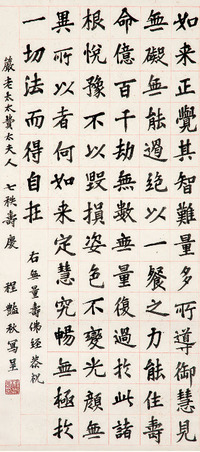 如来正覺其智難量多所導御慧見
無礙無能過絕以一餐之力能住壽
命億百千劫無數無量復過於此諸
根悅豫不以毀損姿色不變光顏無
異所以者何如来定慧究暢無極於
一切法而得自在
右無量壽佛經恭祝
嚴老太太費太夫人 七秩壽慶
程艷秋寫呈